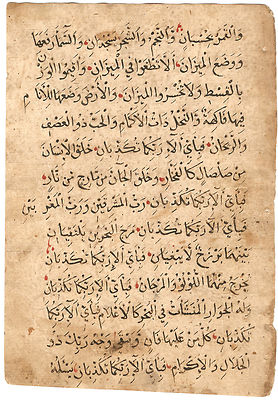 وَالْقَمَرُ بِحُسْبَانٍ وَالنَّجْمُ وَالشَّجَرُ يَسْجُدَانِ وَالسَّمَاءَ رَفَعَهَا
وَوَضَعَ الْمِيزَانَ أَلَّا تَطْغَوْا فِي الْمِيزَانِ وَأَقِيمُوا الْوَزْنَ
بِالْقِسْطِ وَلَا تُخْسِرُوا الْمِيزَانَ وَالْأَرْضَ وَضَعَهَا لِلْأَنَامِ
فِيهَا فَاكِهَةٌ وَالنَّخْلُ ذَاتُ الْأَكْمَامِ وَالْحَبُّ ذُو الْعَصْفِ
وَالرَّيْحَانُ فَبِأَيِّ آلَاءِ رَبِّكُمَا تُكَذِّبَانِ خَلَقَ الْإِنْسَانَ
مِنْ صَلْصَالٍ كَالْفَخَّارِ وَخَلَقَ الْجَانَّ مِنْ مَارِجٍ مِنْ نَارٍ
فَبِأَيِّ آلَاءِ رَبِّكُمَا تُكَذِّبَانِ رَبُّ الْمَشْرِقَيْنِ وَرَبُّ الْمَغْرِبَيْنِ
فَبِأَيِّ آلَاءِ رَبِّكُمَا تُكَذِّبَانِ مَرَجَ الْبَحْرَيْنِ يَلْتَقِيَانِ
بَيْنَهُمَا بَرْزَخٌ لَا يَبْغِيَانِ فَبِأَيِّ آلَاءِ رَبِّكُمَا تُكَذِّبَانِ
يَخْرُجُ مِنْهُمَا اللُّؤْلُؤُ وَالْمَرْجَانُ فَبِأَيِّ آلَاءِ رَبِّكُمَا تُكَذِّبَانِ
وَلَهُ الْجَوَارِ الْمُنْشَآتُ فِي الْبَحْرِ كَالْأَعْلَامِ فَبِأَيِّ آلَاءِ رَبِّكُمَا
تُكَذِّبَانِ كُلُّ مَنْ عَلَيْهَا فَانٍ وَيَبْقَى وَجْهُ رَبِّكَ ذُو
الْجَلَالِ وَالْإِكْرَامِ فَبِأَيِّ آلَاءِ رَبِّكُمَا تُكَذِّبَانِ يَسْئَلُهُ